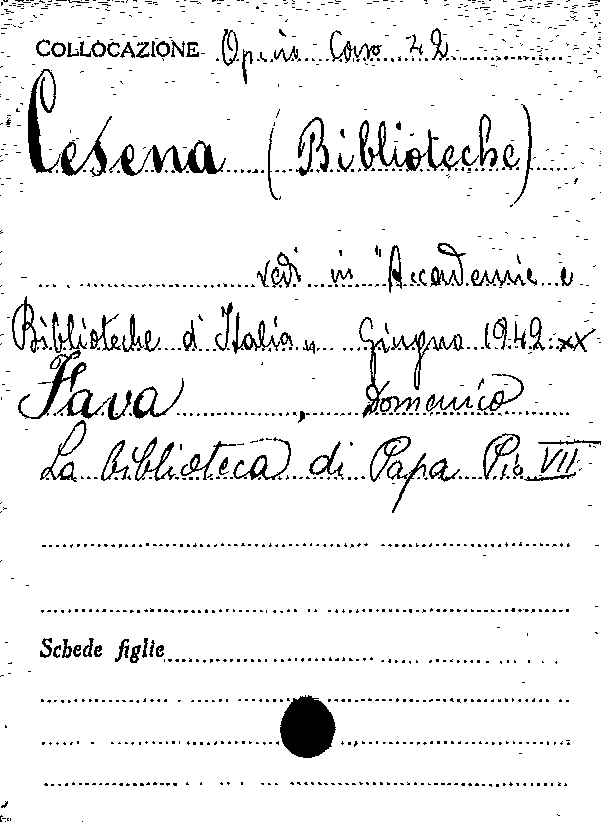 COLLOCAZIONE Opera Caro 42
Cesena (Biblioteche)
vedi in "Accademie e
Biblioteche d'Italia„ Giugno 1942.XX
Fava, Domenico
La biblioteca di Papa Pio VII
Schede figlie